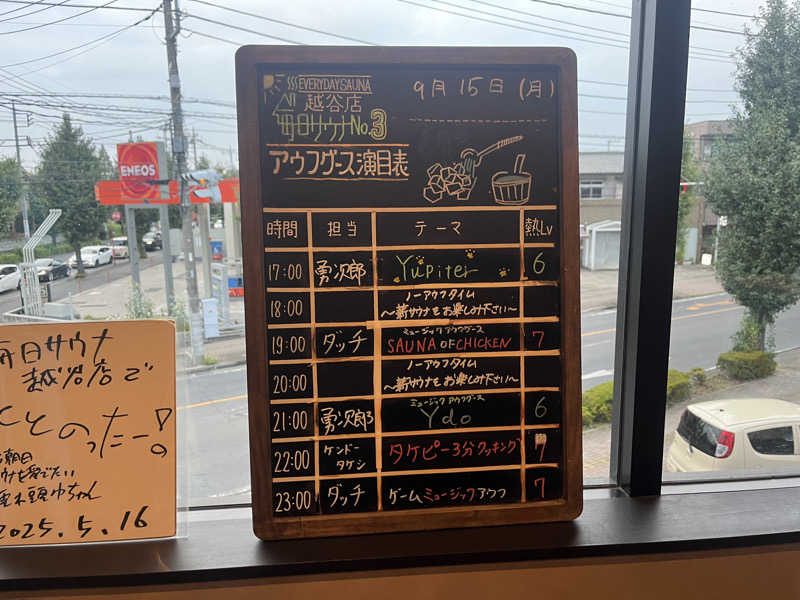 ENEOS
EVERYDAY SAUNA
越谷店
毎日サウナNo.3
アウフグース演目表
9月15日(月)
時間 担当 テーマ 熱Lv
17:00 勇次郎 Yupiter 6
18:00 ノーアウフタイム
〜薪サウナをお楽しみ下さい〜
19:00 ダッチ ミュージックアウフグース
SAUNA OF CHICKEN 7
20:00 ノーアウフタイム
〜薪サウナをお楽しみ下さい〜
21:00 勇次郎 ミュージックアウフグース
Ydo 6
22:00 ケンドー
タケシ タケピー3分クッキング 7
23:00 ダッチ ゲームミュージックアウフ 7
毎日サウナ
越谷店で
ととのったー!
2025.5.16